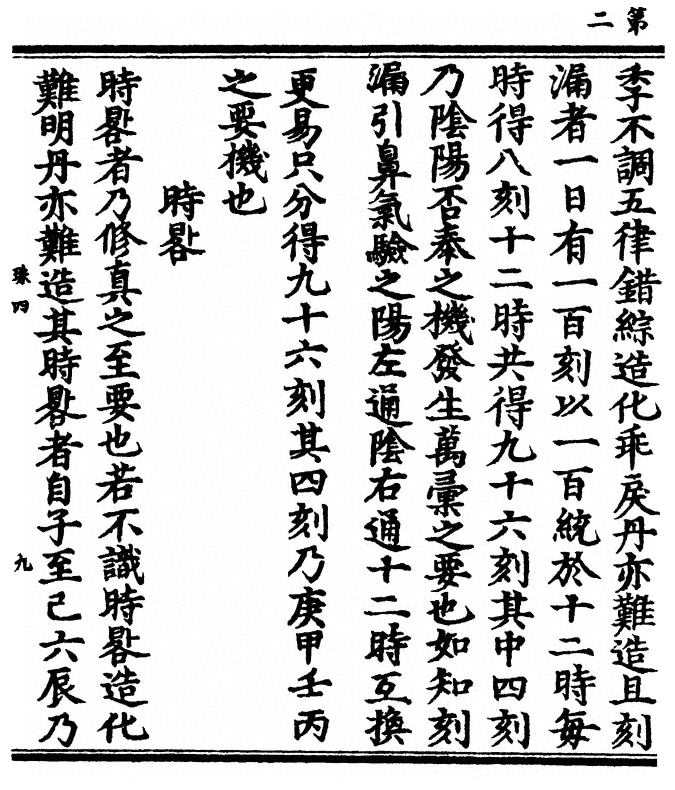 第二
季不調五律錯綜造化乖戾丹亦難造且刻
漏者一日有一百刻以一百統於十二時每
時得八刻十二時共得九十六刻其中四刻
乃陰陽否奉之機發生萬彙之要也如知刻
漏引鼻氣驗之陽左通陰右通十二時互換
更易只分得九十六刻其四刻乃庚甲壬丙
之要機也
時晷
時晷者乃修真之至要也若不識時晷造化
難明丹亦難造其時晷者自子至巳六辰乃
珠四
九